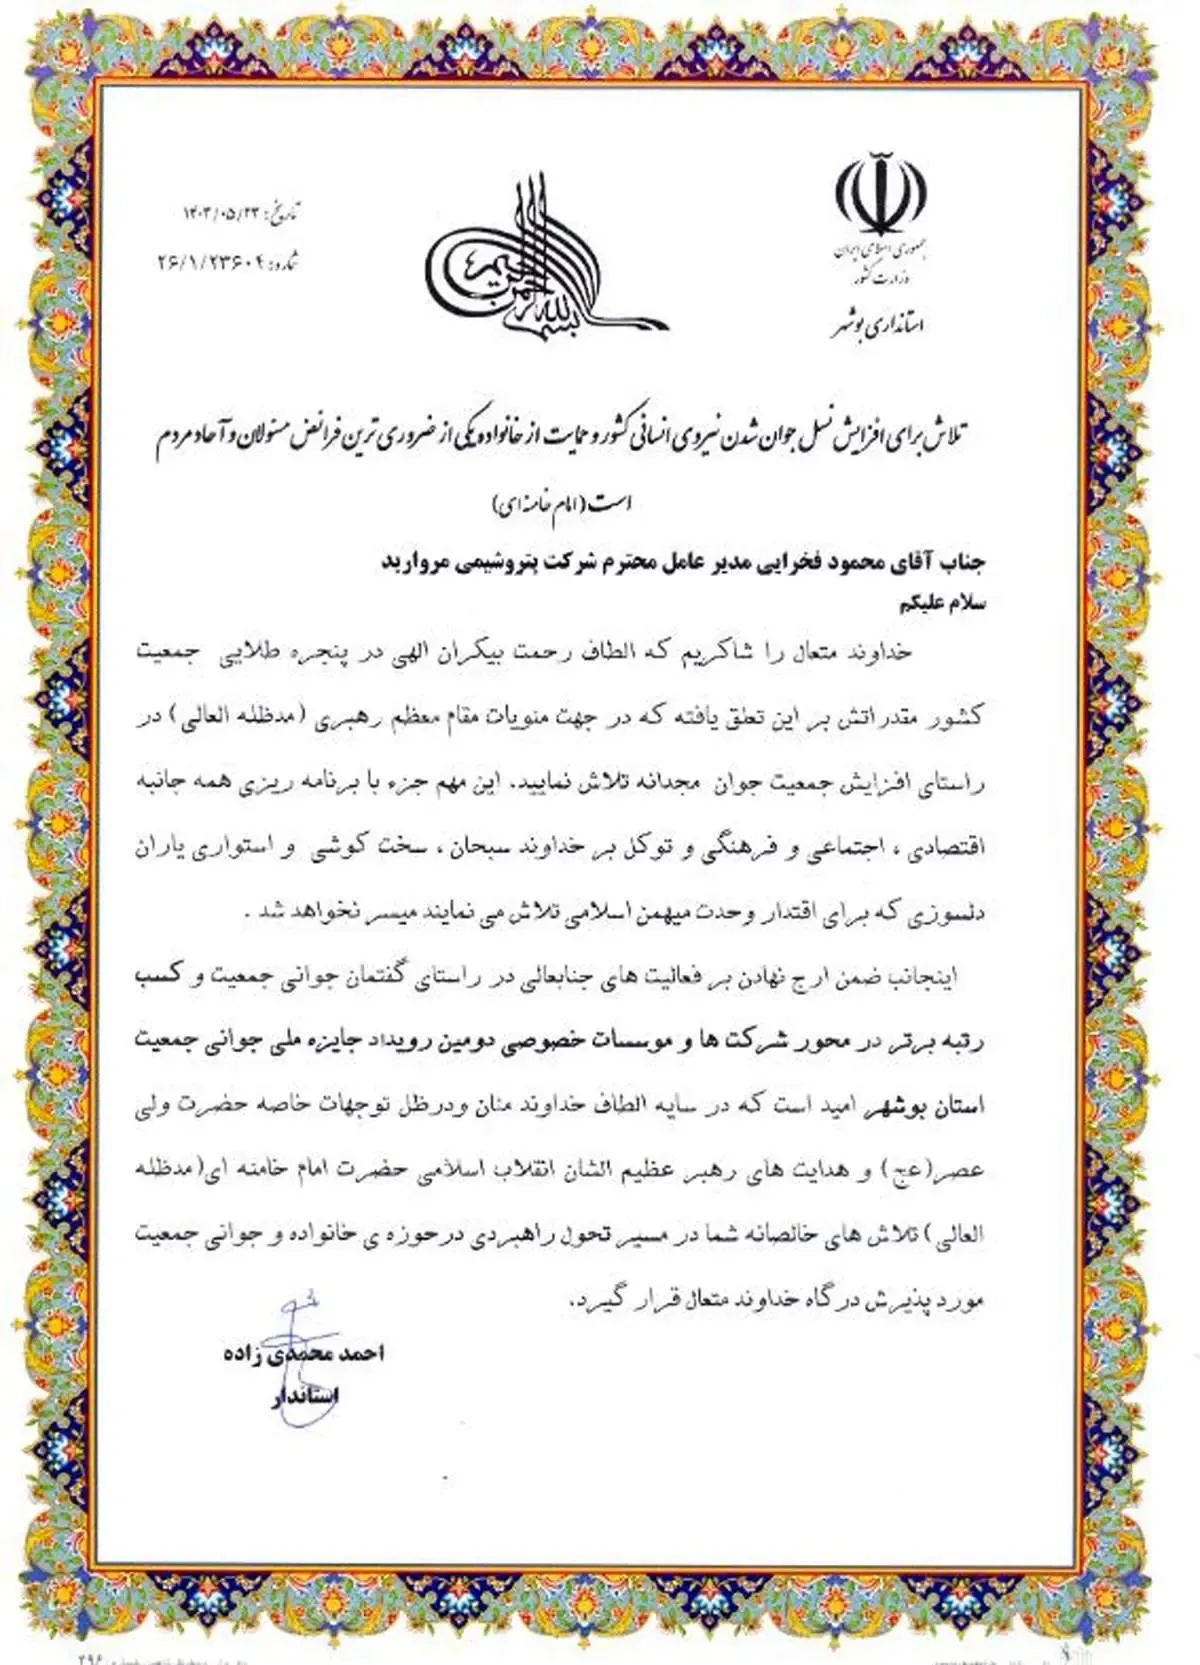 بسم الله الرحمن الرحیم
جمهوری اسلامی ایران
وزارت کشور
استانداری بوشهر
تاریخ: ۱۴۰۳/۰۵/۲۳
شماره: ۲۶/۱/۲۳۶۰۴
تلاش برای افزایش نسل جوان شدن نیروی انسانی کشور و حمایت از خانواده یکی از ضروری ترین فرائض مسئولان و آحاد مردم
است (امام خامنه ای)
جناب آقای محمود فخرایی مدیر عامل محترم شرکت پتروشیمی مروارید
سلام علیکم
خداوند متعال را شاکریم که الطاف رحمت بیکران الهی در پنجره طلایی جمعیت
کشور مقدراتش بر این تعلق یافته که در جهت منویات مقام معظم رهبری (مدظله العالی) در
راستای افزایش جمعیت جوان مجدانه تلاش نمایید. این مهم جزء با برنامه ریزی همه جانبه
اقتصادی ، اجتماعی و فرهنگی و توکل بر خداوند سبحان ، سخت کوشی و استواری یاران
دلسوزی که برای اقتدار وحدت میهمن اسلامی تلاش می نمایند میسر نخواهد شد .
اینجانب ضمن ارج نهادن بر فعالیت های جنابعالی در راستای گفتمان جوانی جمعیت و کسب
رتبه برتر در محور شرکت ها و موسسات خصوصی دومین رویداد جایزه ملی جوانی جمعیت
استان بوشهر امید است که در سایه الطاف خداوند منان ودرظل توجهات خاصه حضرت ولی
عصر(عج) و هدایت های رهبر عظیم الشان انقلاب اسلامی حضرت امام خامنه ای(مدظله
العالی) تلاش های خالصانه شما در مسیر تحول راهبردی درحوزه ی خانواده و جوانی جمعیت
مورد پذیرش درگاه خداوند متعال قرار گیرد.
احمد محمدی زاده
استاندار